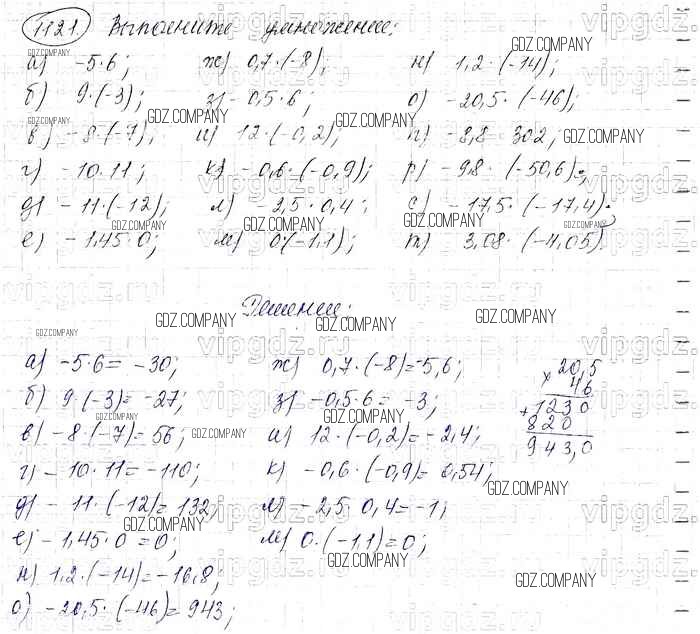 1121. Выполните умножение:
а) -5·6; ж) 0,7·(-8); н) 1,2·(-14);
б) 9·(-3); з) -0,5·6; о) -20,5·(-46);
в) -8·(-7); и) 12·(-0,2); п) -8,8·302;
г) -10·11; к) -0,6·(-0,9); р) -9,8·(-50,6);
д) -11·(-12); л) -2,5·0,4; с) -17,5·(-17,4);
е) -1,45·0; м) 0·(-1,1); т) 3,08·(-4,05).
Решение:
а) -5·6 = -30; ж) 0,7·(-8)=-5,6;
б) 9·(-3)= -27; з) -0,5·6 = -3;
в) -8·(-7)= 56; и) 12·(-0,2)= -2,4;
г) -10·11= -110; к) -0,6·(-0,9)= 0,54;
д) -11·(-12)= 132; л) -2,5·0,4=-1;
е) -1,45·0 =0; м) 0·(-1,1)=0;
н) 1,2·(-14)=-16,8;
о) -20,5·(-46)= 943;
20,5
× 46
+1230
820
943,0
GDZ.COMPANY
vipgdz.ru